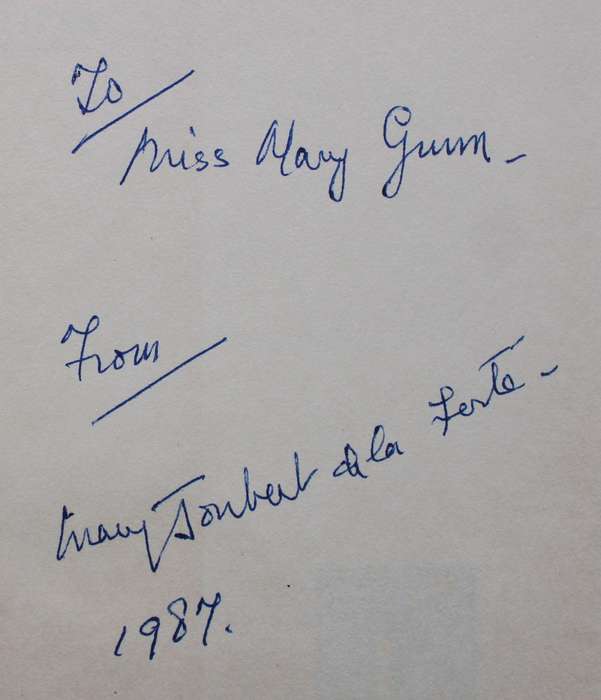 To
Miss Mary Gunn -
From
Mary Joubert de la Ferté -
1987.